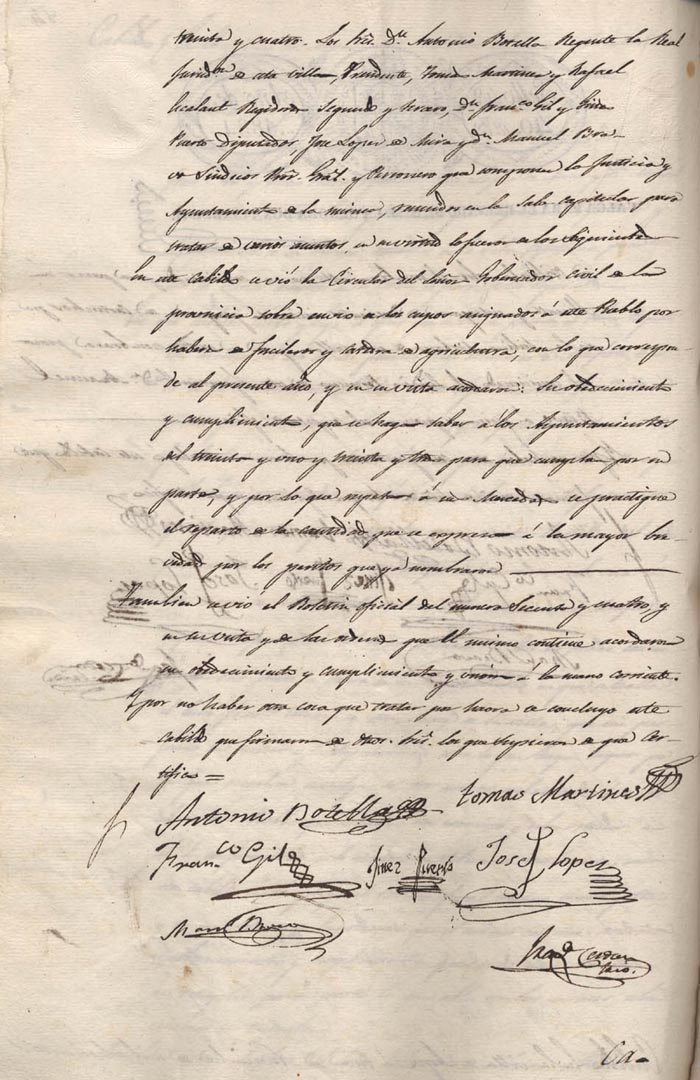 treinta y cuatro. Los Sres. Dn. Antonio Botella Regente la Real
Juridon. de esta villa, Precidente, Tomas Martinez y Rafael
Escalant Regidores Segundo y tercero, Dn. Franco. Gil y Gines
Puerto Diputados, Jose Lopez de Mira y Dn. Manuel Bra-
vo Sindicos Pror. Gral. y Personero que componen la Justicia y
Ayuntamiento de la misma, reunidos en la Sala capitular para
tratar de varios asuntos, en su virtud lo hicieron de los Siguientes
En este Cabildo se vió la Circular del Señor Gobernador Civil de la
provincia sobre envio de los cupos asignados á este Pueblo por
haberes de Fucileros y catedra de agricultura, con lo que correspon-
de al presente año, y en su vista acordaron: Su obedecimiento
y cumplimiento, que se haga saber á los Ayuntamientos
del treinta y uno y treinta y tres para que cumplan por su
parte, y por lo que respeta á sus Mercedes se practique
el reparto de la cantidad que se expresa á la mayor bre-
vedad por los peritos que ya nombraron
Tambien se vió el Boletin oficial del numero Sesenta y cuatro, y
en su vista y de las ordenes que el mismo contiene acordaron
su obedecimiento y cumplimiento y union á la mano corriente.
Y por no haber otra cosa que tratar por haora se concluyo este
Cabildo que firmaron de dhos. Sres. los que supieron de que Cer-
tifico =
Antonio Botella Tomas Martines
Franco. Gil Jinez Puerto Josef Lopez
Manl. Bravo
Ca-